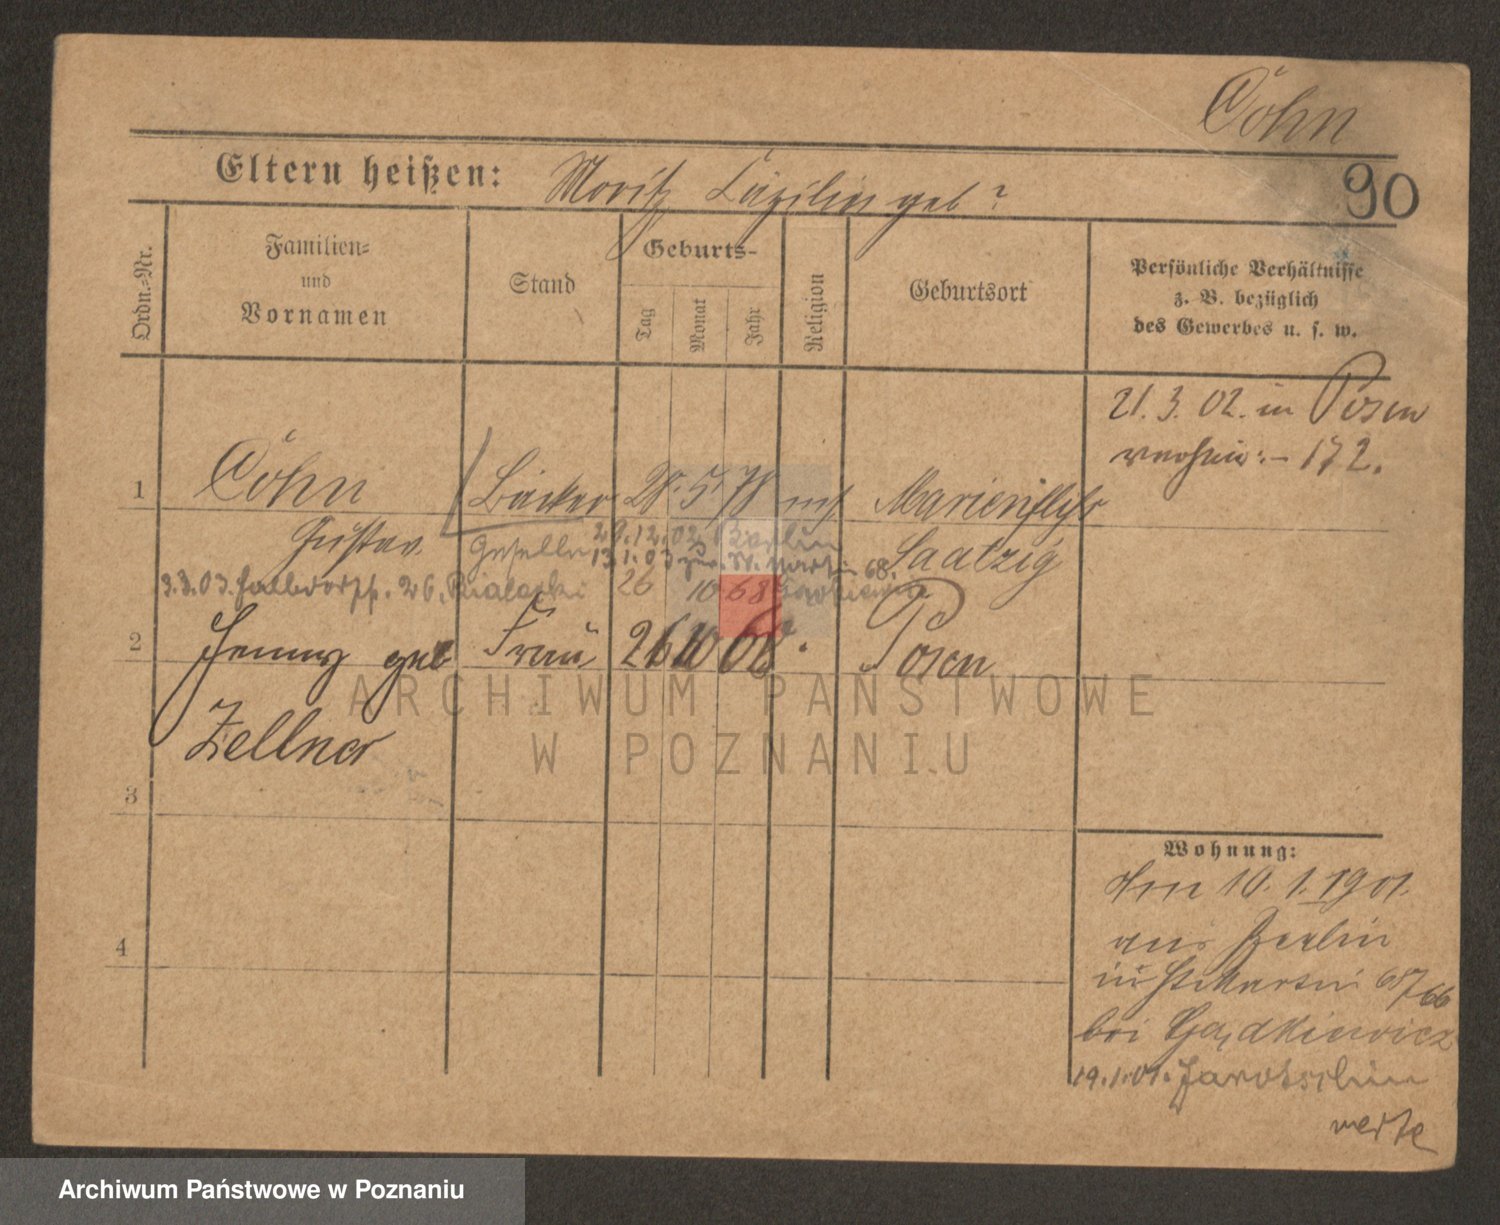 Cohn
90
Eltern heißen: Moritz Cäzilie geb?
Ordn.-Nr.
Familien-
und
Vornamen
Stand
Geburts-
Tag
Monat
Jahr
Religion
Geburtsort
Persönliche Verhältnisse
z. B. bezüglich
des Gewerbes u. s. w.
21. 3. 02. in Posen
172.
1 Cohn Bäcker 28. 5. 78 mos Marienfließ
Gustav Geselle 29.12.02 Berlin Saatzig
13.1.03 zur. St. Martin 68.
3.3.03. Halbdorfstr. 26. Bialecki 26 10 68
2 Jenny geb Frau 26 10 68. Posen
Zellner
3
4
ARCHIWUM PAŃSTWOWE
W POZNANIU
Wohnung:
Am 10. 1. 1901.
aus Berlin
St. Martin 68/66
bei
19.1.01. Jarotschin
Archiwum Państwowe w Poznaniu